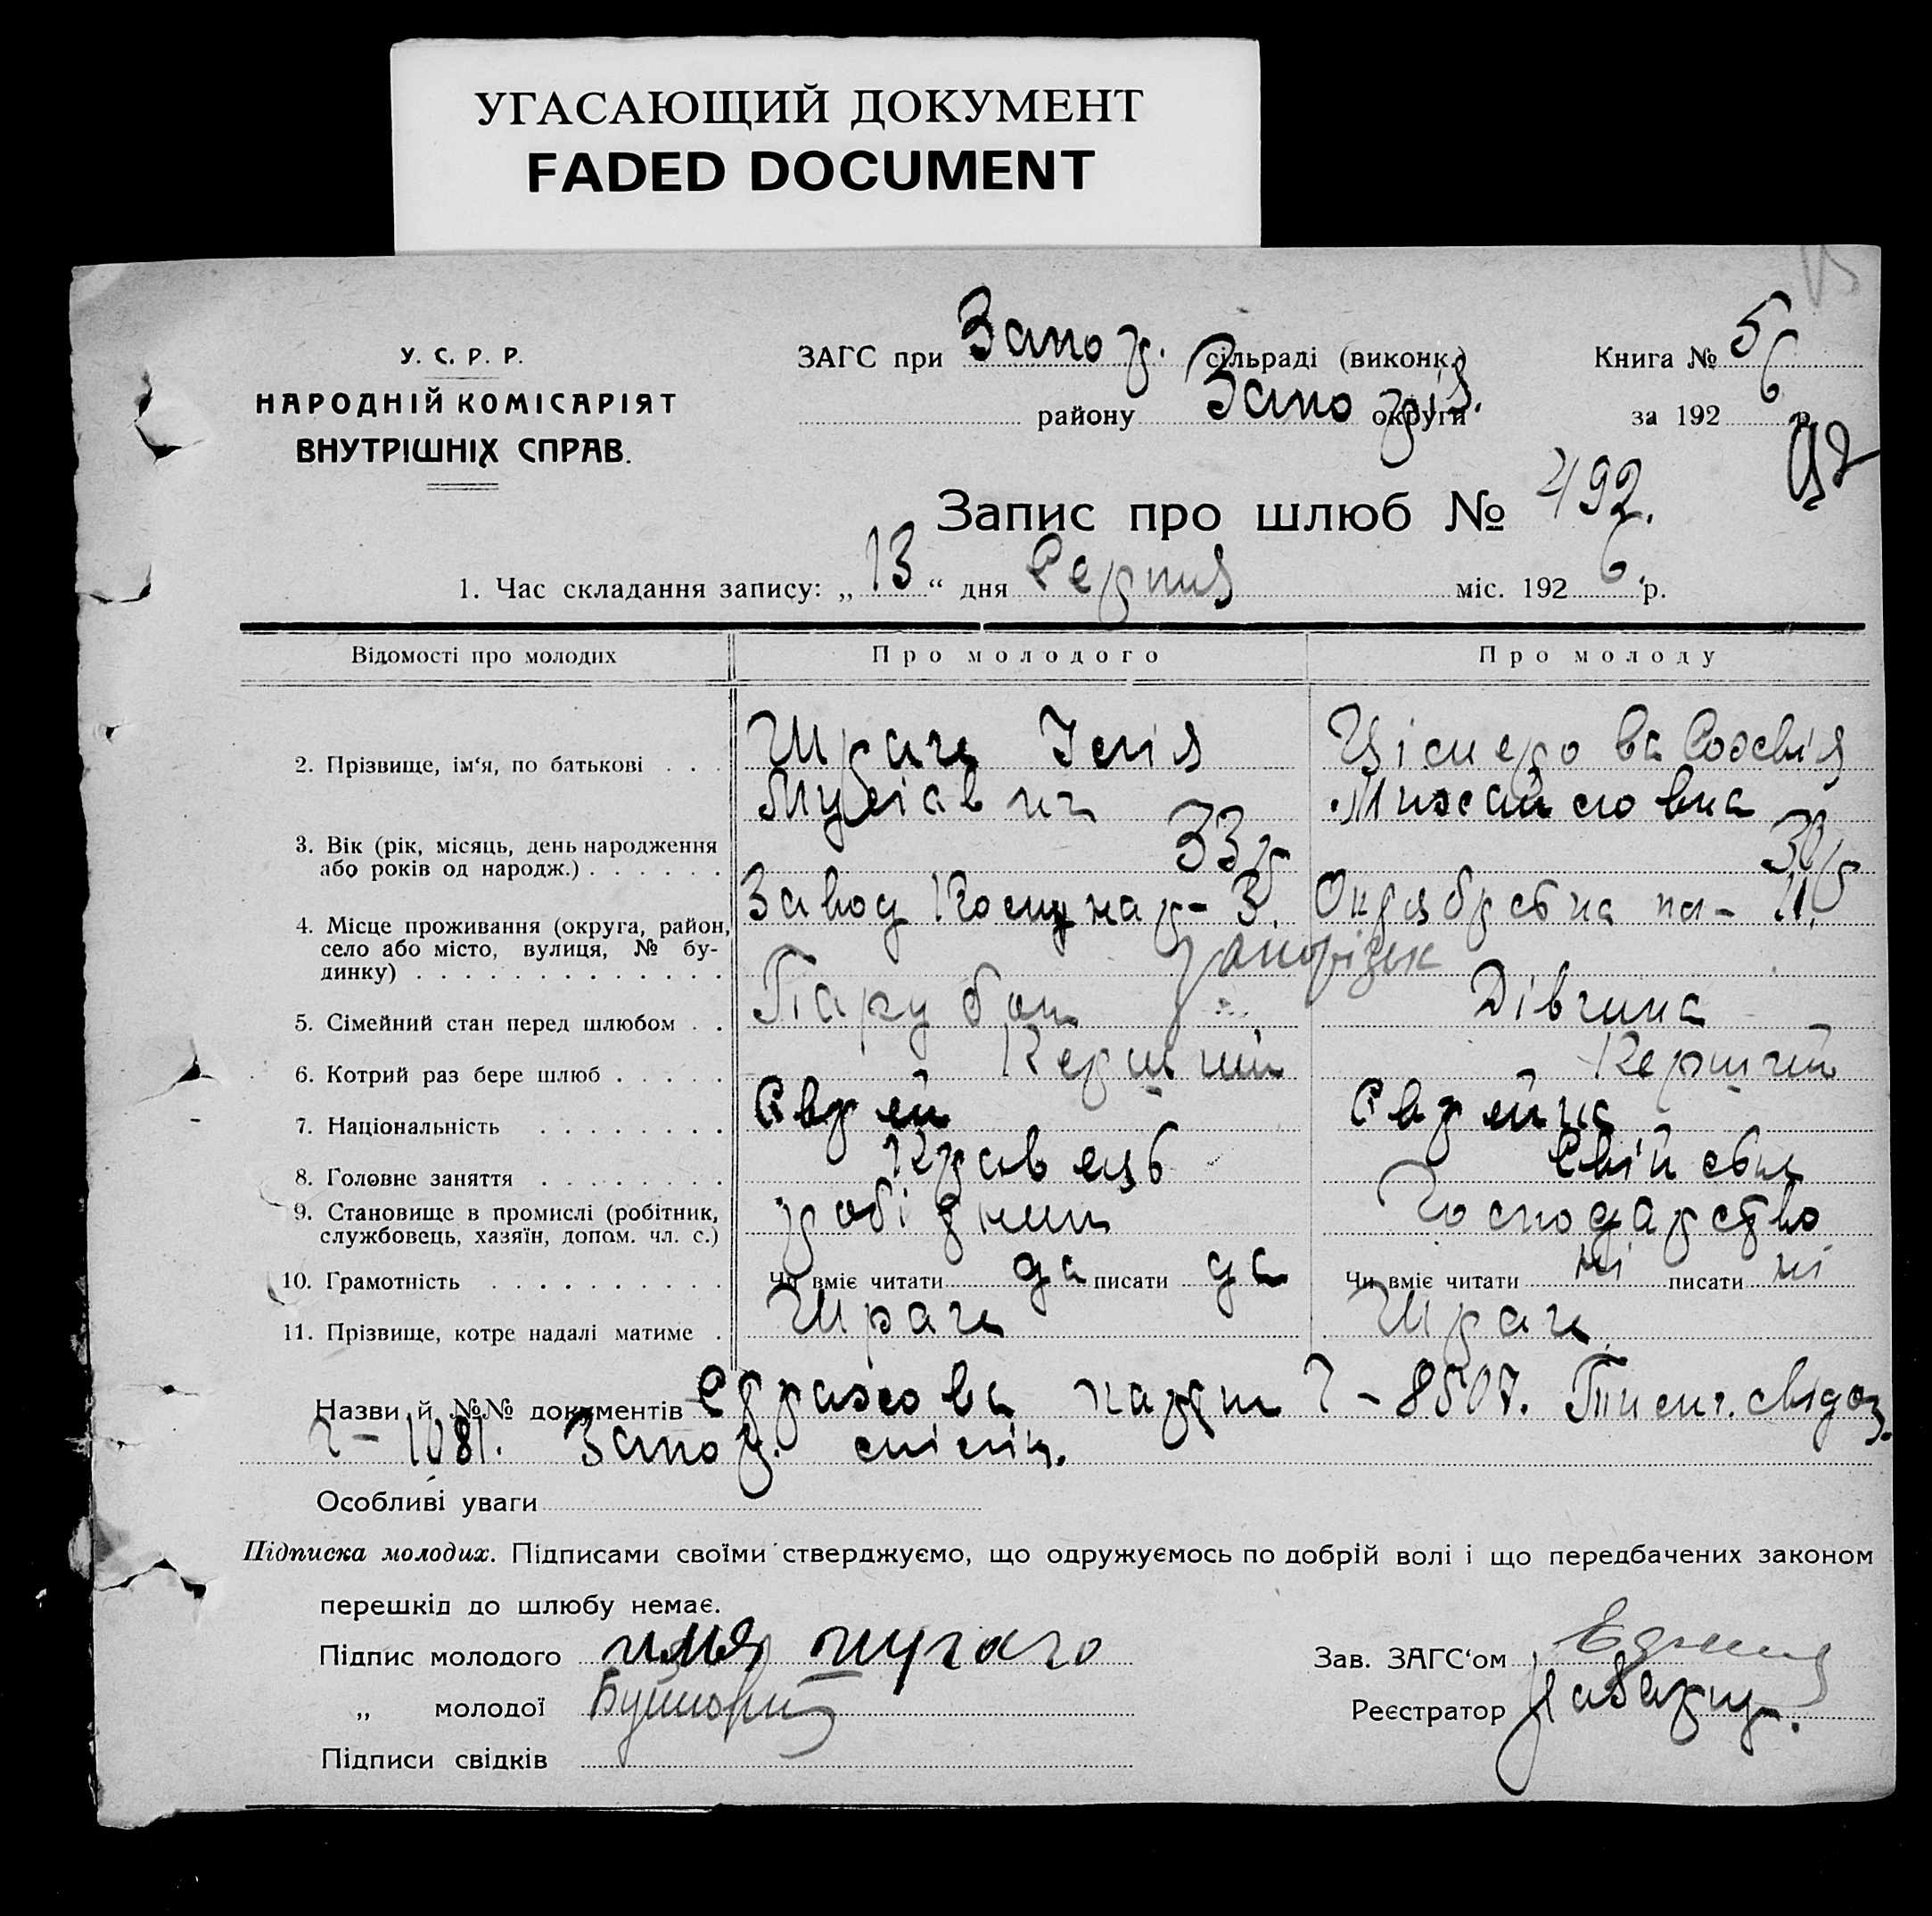 УГАСАЮЩИЙ ДОКУМЕНТ
FADED DOCUMENT
У. С. Р. Р.
НАРОДНІЙ КОМІСАРІЯТ
ВНУТРІШНІХ СПРАВ.
ЗАГС при Запор. сільраді (виконк.)
району Запоріз. округи
Книга № 5
за 192 6 р.
92
Запис про шлюб № 492.
1. Час складання запису: „ 13 “ дня Серпня міс. 192 6. р.
Відомості про молодих Про молодого Про молоду
2. Прізвище, ім‘я, по батькові . . . Шрага Ілія
Михайловна
3. Вік (рік, місяць, день народження
або років од народж.) . . . . . . 33 р 30 р
4. Місце проживання (округа, район, Завод Комунар - З.
село або місто, вулиця, № бу-
динку) . . . . . . . . . . . . . . Запоріжж
5. Сімейний стан перед шлюбом . . Парубок Дівчина
6. Котрий раз бере шлюб . . . . . Перший Перший
7. Національність . . . . . . . . Єврей Єврейка
8. Головне заняття . . . . . . . . Кравець
9. Становище в промислі (робітник, робідник Господарство
службовець, хазяїн, допом. чл. с.)
10. Грамотність . . . . . . . . . . Чи вміє читати да писати да Чи вміє читати ні писати ні
11. Прізвище, котре надалі матиме . Шрага Шрага
Назви й №№ документів Страхова картк Ч - 8507. Тимч. свідоз.
Ч - 1081. Запор.
Особливі уваги
Підписка молодих. Підписами своїми стверджуємо, що одружуємось по добрій волі і що передбачених законом
перешкід до шлюбу немає.
Підпис молодого
Зав. ЗАГС‘ом
„ молодої
Реєстратор
Підписи свідків